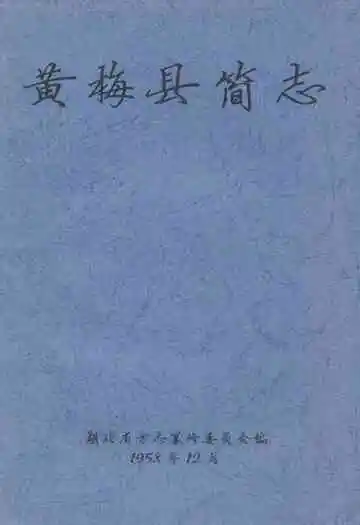 黄梅县简志
湖北省方志纂修委员会编
1958年12月